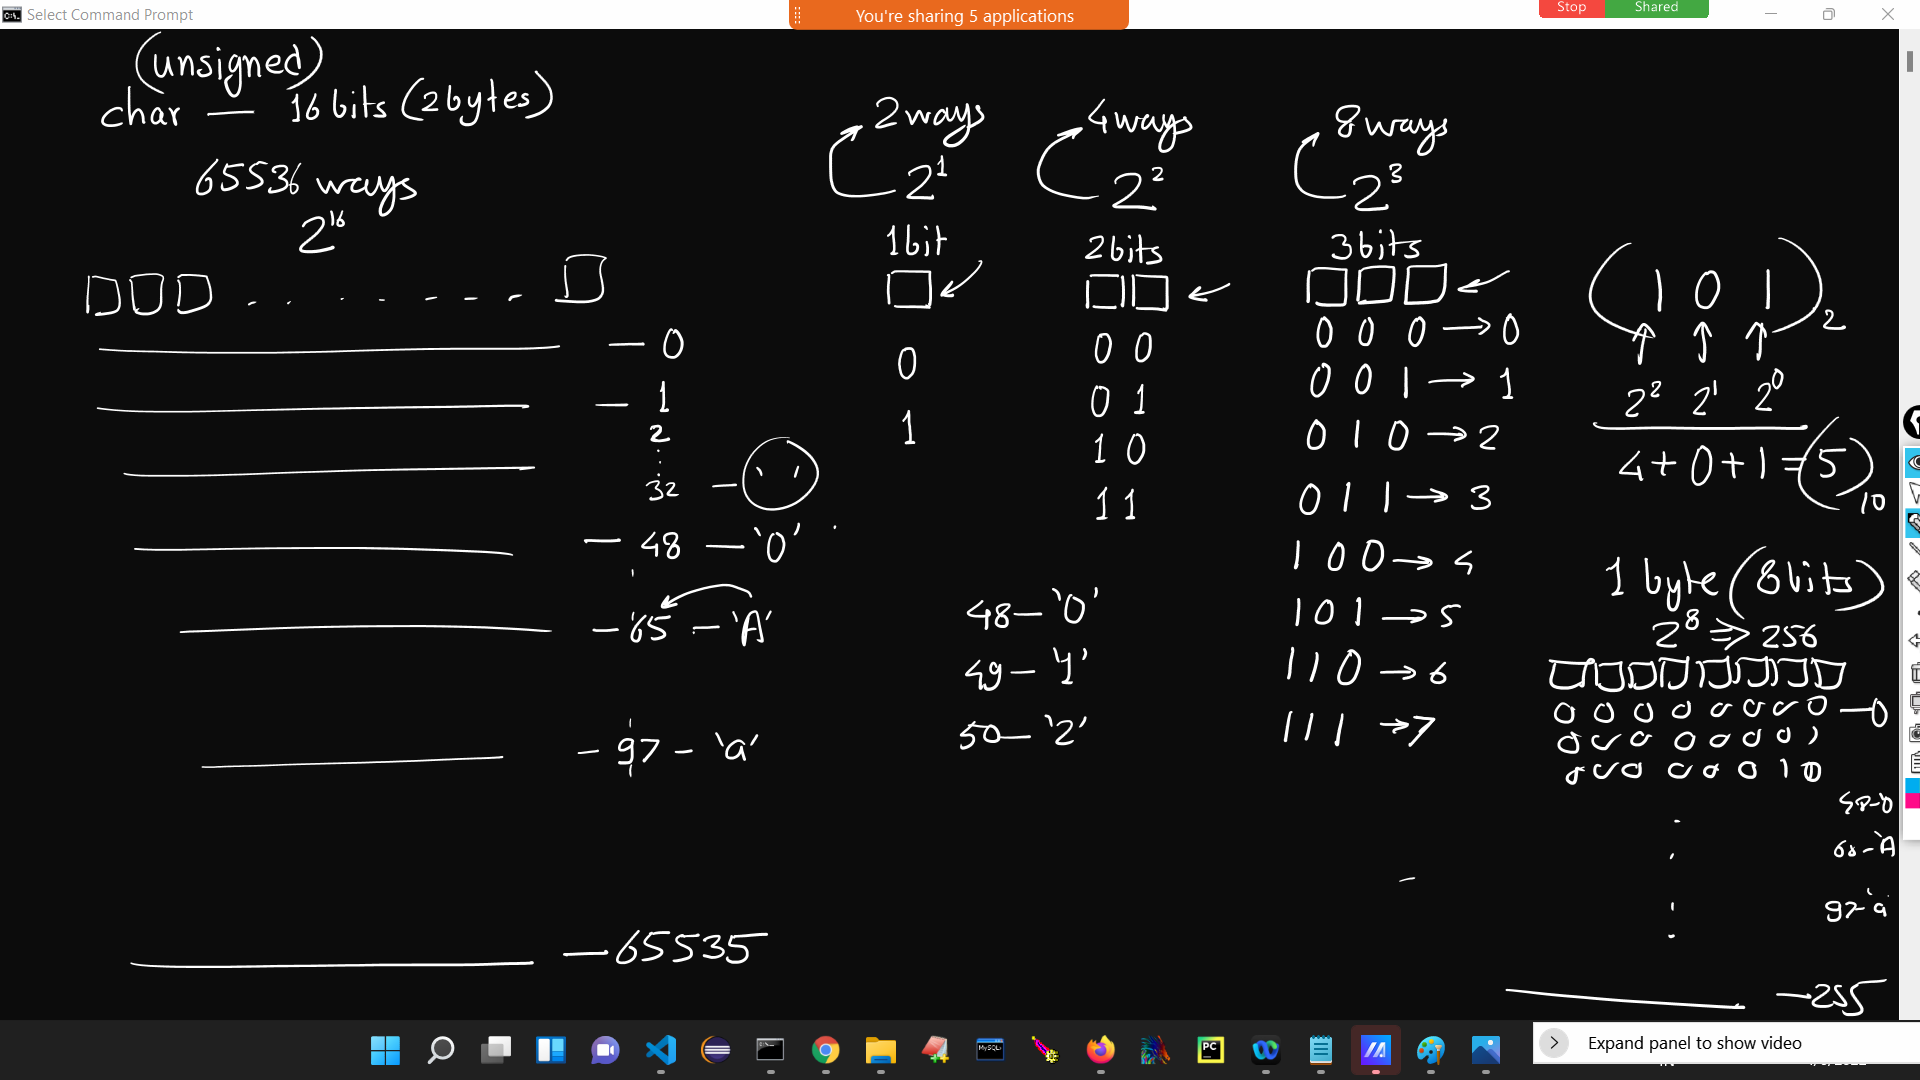 Select Command Prompt
You're sharing 5 applications
Stop
Shared
(unsigned)
char — 16 bits (2 bytes)
65536 ways
2^16
— 0
— 1
2
32 —
— 48 — '0'
— 65 — 'A'
— 97 — 'a'
— 65535
2 ways
2^1
1 bit
0
1
4 ways
2^2
2 bits
0 0
0 1
1 0
1 1
48 — '0'
49 — '1'
50 — '2'
8 ways
2^3
3 bits
0 0 0 → 0
0 0 1 → 1
0 1 0 → 2
0 1 1 → 3
1 0 0 → 4
1 0 1 → 5
1 1 0 → 6
1 1 1 → 7
(1 0 1)2
2^2 2^1 2^0
4 + 0 + 1 = (5)10
1 byte (8 bits)
2^8 ⇒ 256
0 0 0 0 0 0 0 0 — 0
0 0 0 0 0 0 0 1
0 0 0 0 0 0 1 0
48 - '0
- 'A
97 - 'a'
— 255
MySQL
PC
Expand panel to show video